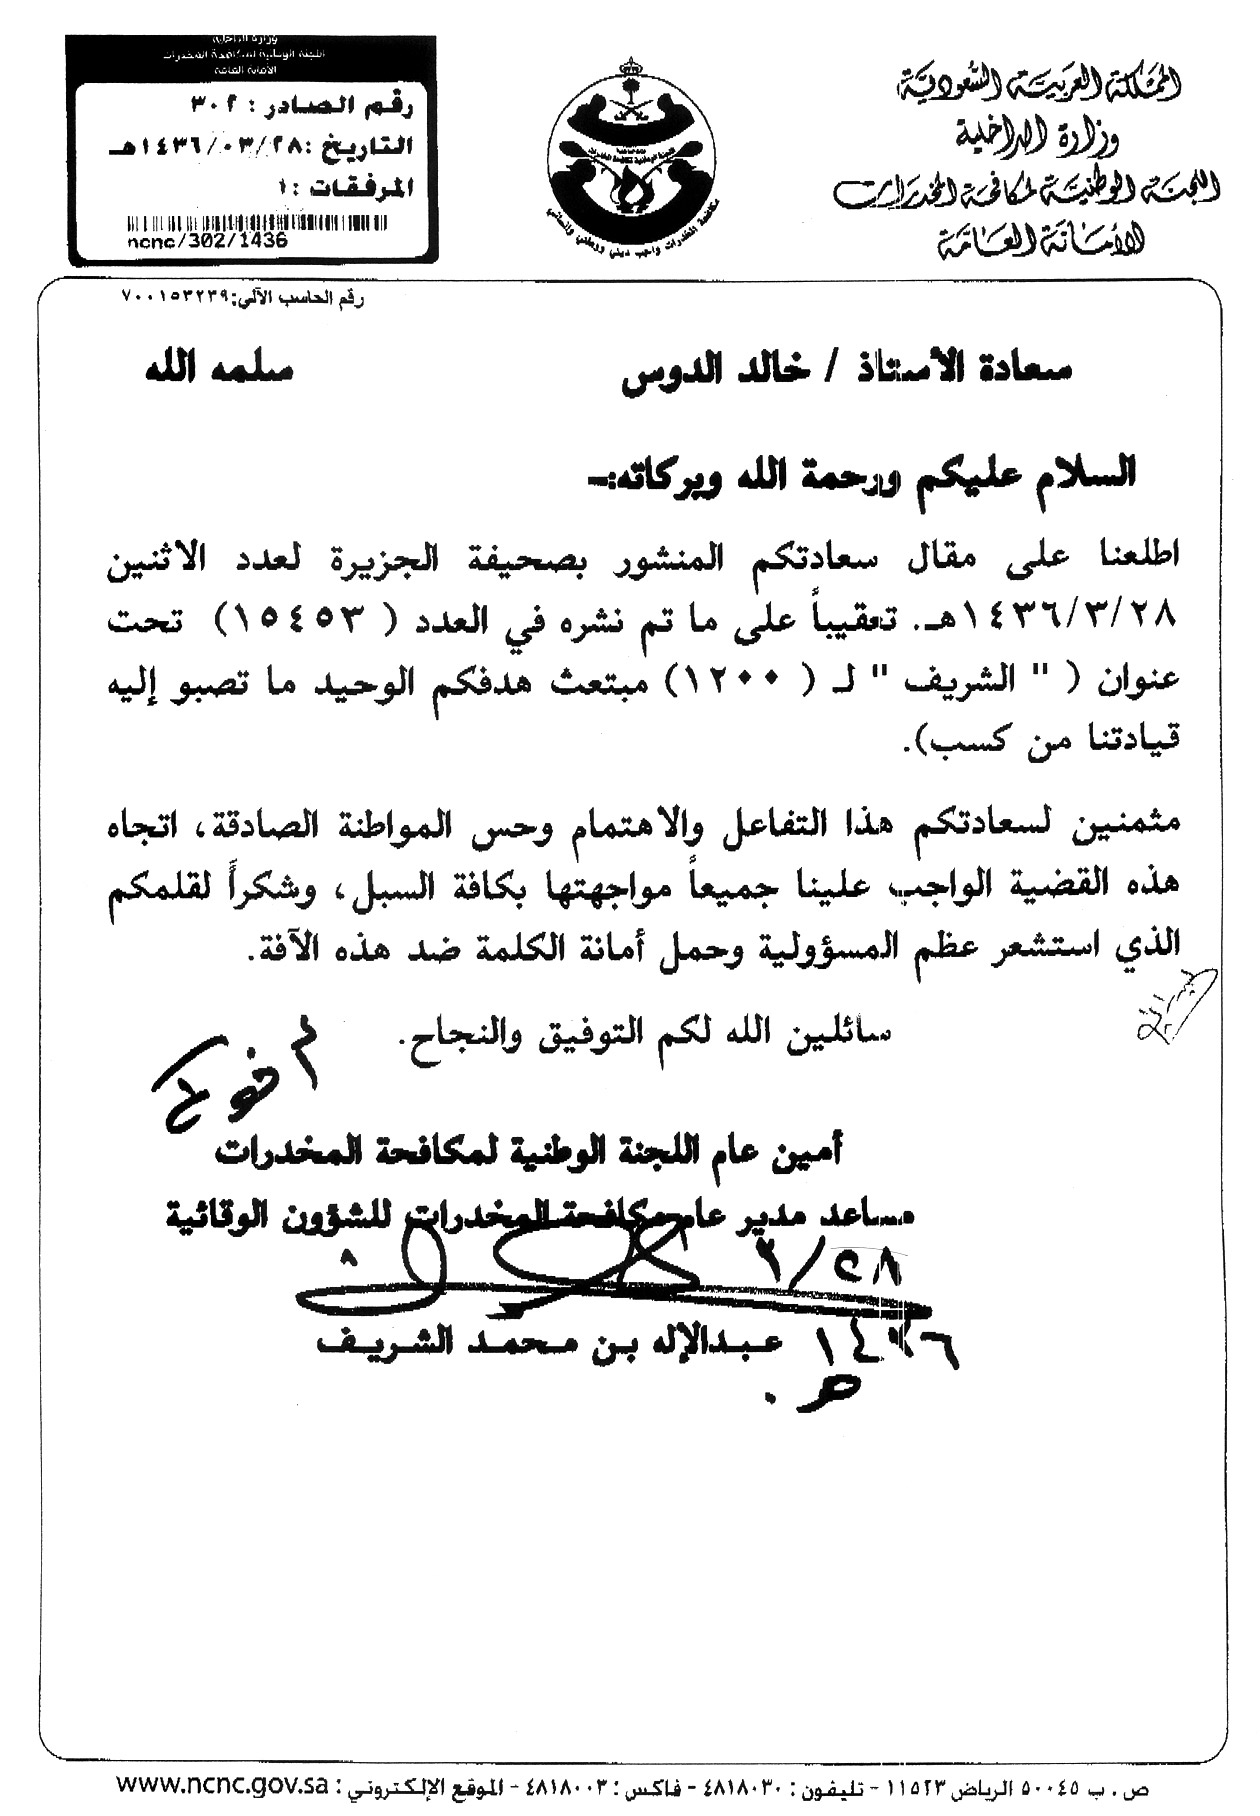 المملكة العربية السعودية
وزارة الداخلية
اللجنة الوطنية لمكافحة المخدرات
الأمانة العامة
مكافحة المخدرات واجب ديني ووطني وإنساني
وزارة الداخلية
اللجنة الوطنية لمكافحة المخدرات
الأمانة العامة
رقم الصادر : ٣٠٢
التاريخ : ١٤٣٦/٠٣/٢٨هـ
المرفقات : ١
ncnc/302/1436
رقم الحاسب الآلي: ٧٠٠١٥٣٢٣٩
سعادة الأستاذ / خالد الدوس سلمه الله
السلام عليكم ورحمة الله وبركاته:-
اطلعنا على مقال سعادتكم المنشور بصحيفة الجزيرة لعدد الاثنين
١٤٣٦/٣/٢٨هـ. تعقيباً على ما تم نشره في العدد ( ١٥٤٥٣) تحت
عنوان ( " الشريف " لـ ( ١٢٠٠) مبتعث هدفكم الوحيد ما تصبو إليه
قيادتنا من كسب).
مثمنين لسعادتكم هذا التفاعل والاهتمام وحس المواطنة الصادقة، اتجاه
هذه القضية الواجب علينا جميعاً مواجهتها بكافة السبل، وشكراً لقلمكم
الذي استشعر عظم المسؤولية وحمل أمانة الكلمة ضد هذه الآفة.
سائلين الله لكم التوفيق والنجاح.
أمين عام اللجنة الوطنية لمكافحة المخدرات
مساعد مدير عام مكافحة المخدرات للشؤون الوقائية
٣/٢٨
١٤٣٦
هـ.
عبدالإله بن محمد الشريف
ص . ب ٥٠٠٤٥ الرياض ١١٥٢٣ - تليفون : ٤٨١٨٠٣٠ - فاكس : ٤٨١٨٠٠٣ - الموقع الإلكتروني : www.ncnc.gov.sa